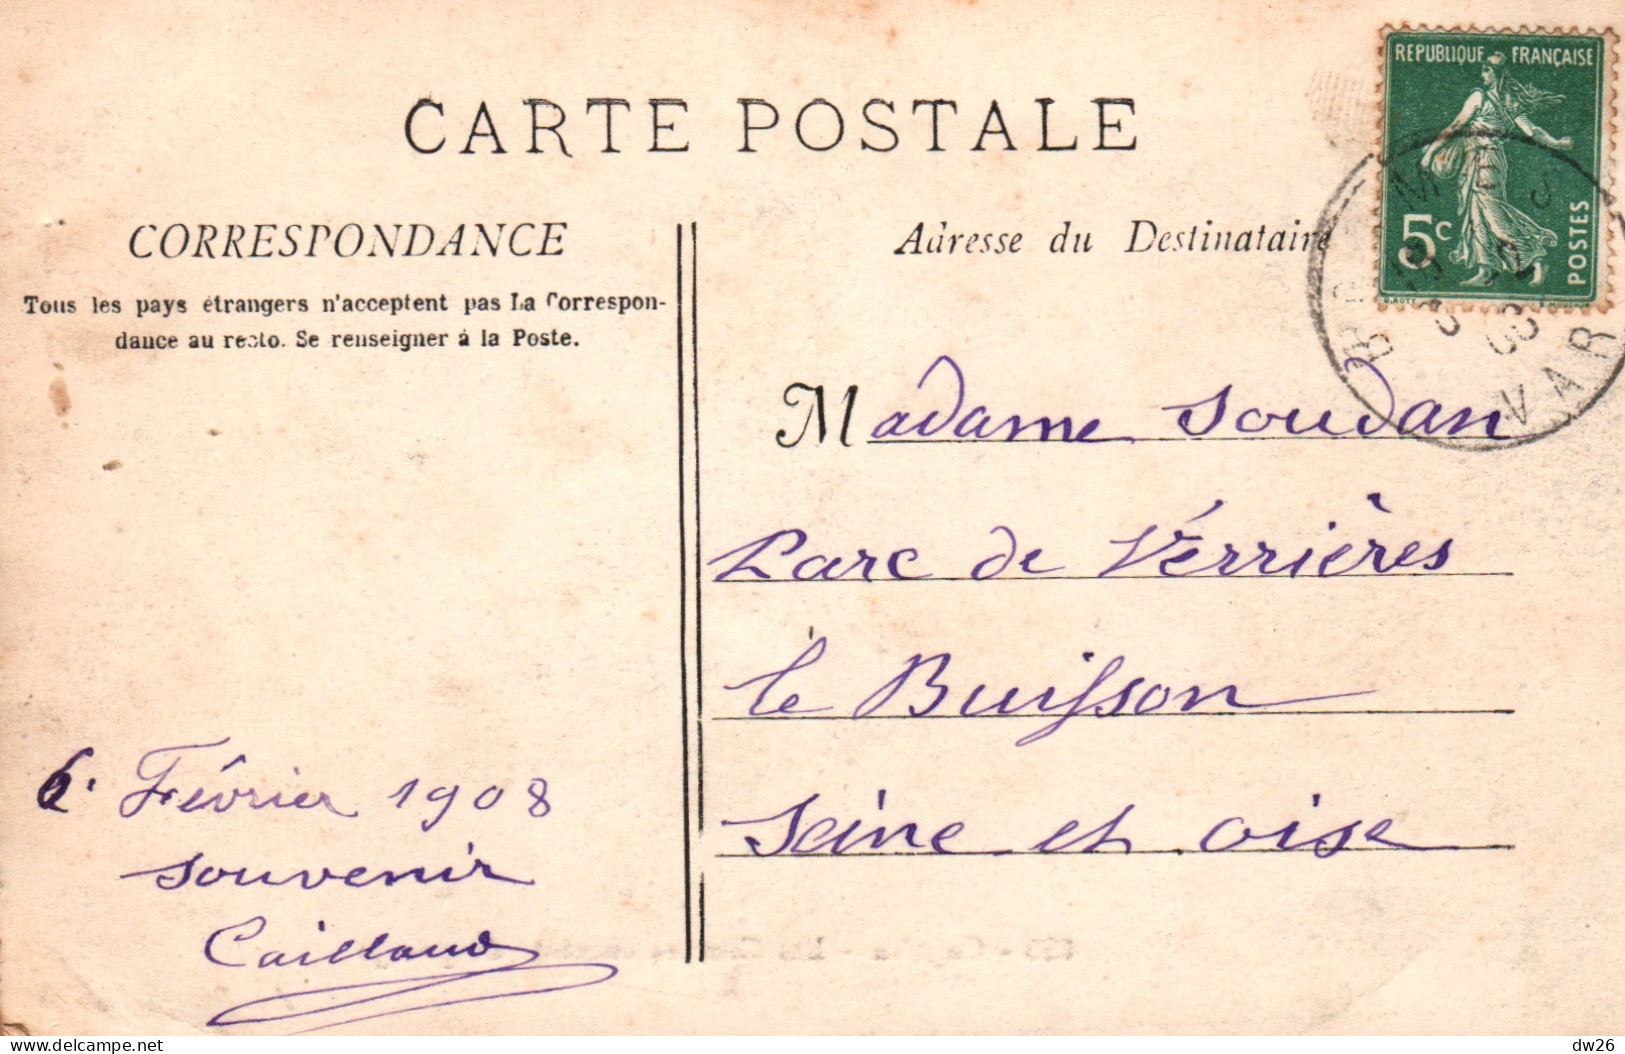 CARTE POSTALE
REPUBLIQUE FRANÇAISE
5c
POSTES
O. ROTY
VAR
CORRESPONDANCE
Tous les pays étrangers n'acceptent pas La Correspon-
dance au recto. Se renseigner à la Poste.
6. Février 1908
souvenir
Caillaud
Adresse du Destinataire
Madame Soudan
Parc de Verrières
le Buisson
Seine et oise
delcampe.net
dw26